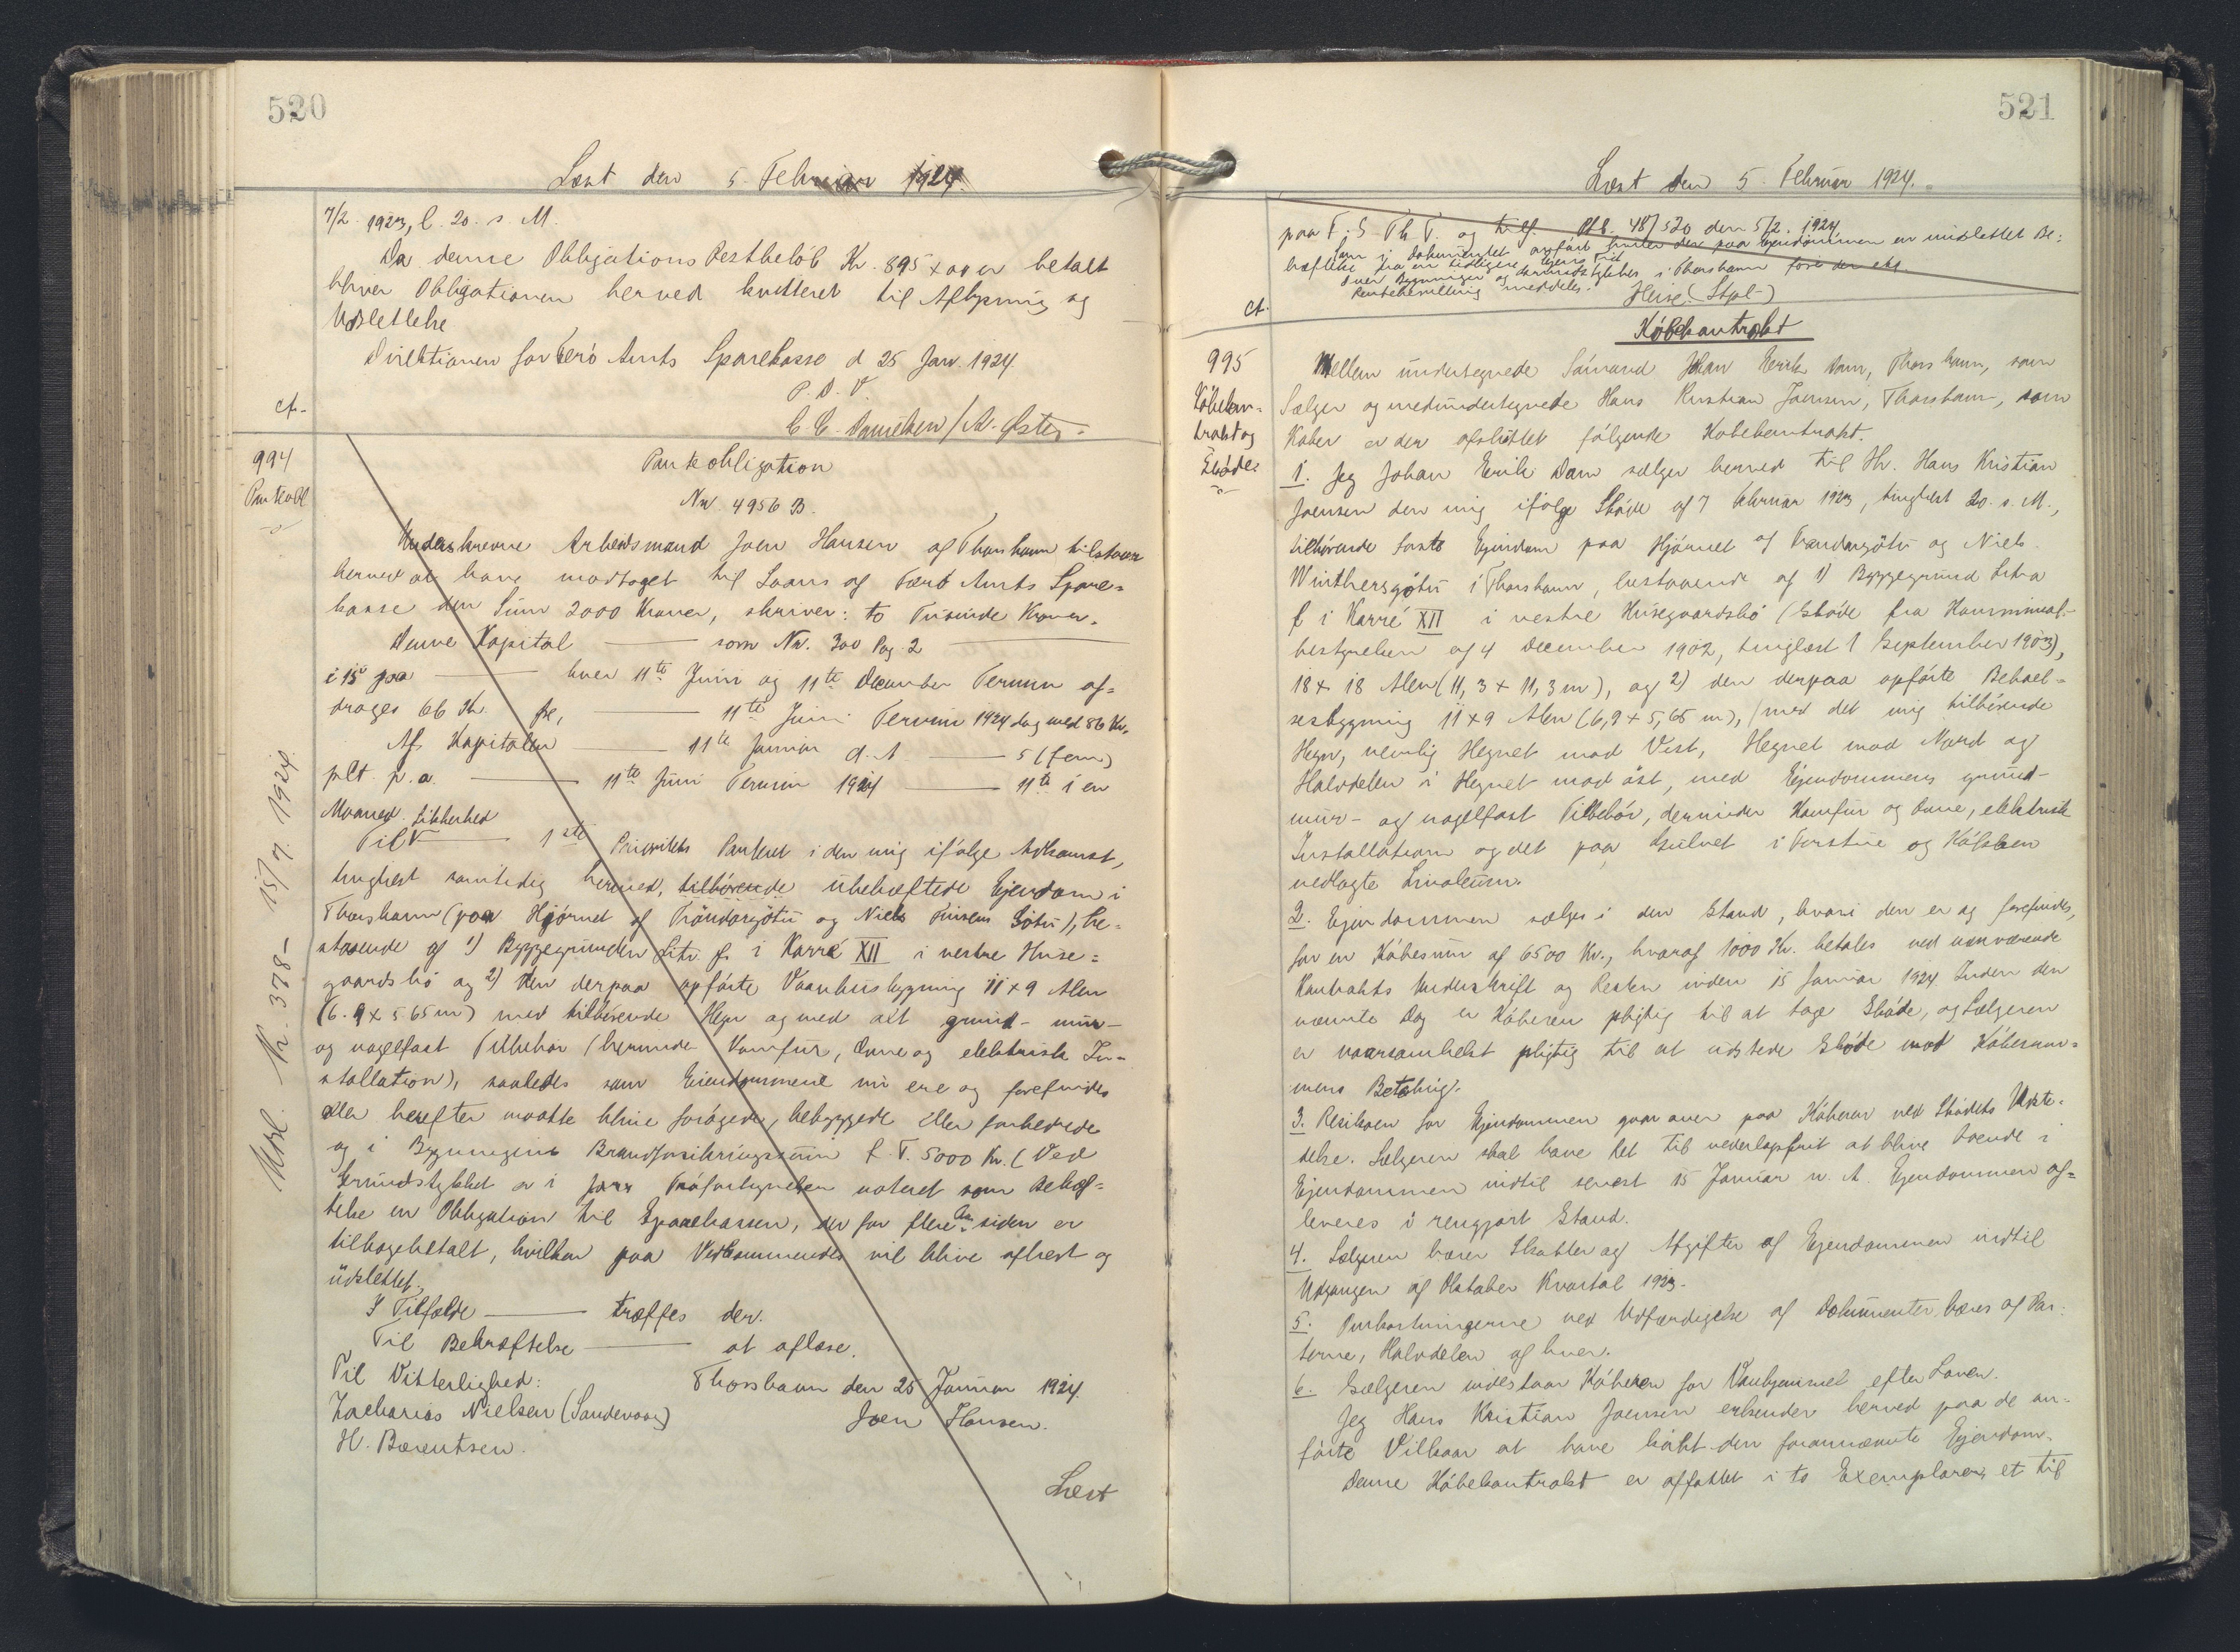 520
Læst den 5. Februar 1924.
7/2 1923, l. 20. s M.
Da denne Obligations Restbeløb Kr. 895 er betalt
bliver Obligationen herved kvitteret til Aflysning og
Udslettelse
Direktionen for Færø Amts Sparekasse d 25 Jan. 1924.
P. D. V.
C. C. Danielsen / A. Østerø
cf.
994
Pantobl
Pantobligation
Nr. 4956 B.
Underskrevne Arbejdsmand Joen Hansen af Thorshavn tilstaar
herved at have modtaget til Laans af Færø Amts Spare=
kasse den Sum 2000 Kroner, skriver: to Tusinde Kroner.
Denne Kapital —— som Nr. 300 Pag 2 ——
i 15 paa —— hver 11te Juni og 11te December Termin af=
drages 66 Kr. —— 11te Juni Termin 1924 dog med 86 Kr.
Af Kapitalen —— 11te Januar d. A —— 5 (fem)
pCt. p. a. —— 11te Juni Termin 1924 —— 11te i en
Maaned.
Til Sikkerhed —— 1ste Prioritets Panteret i den mig ifølge Adkomst,
tinglæst samtidig hermed, tilhørende ubehæftede Ejendom i
Thorshavn (paa Hjørnet af Tróndargøtu og Niels Finsens Gøtu), be=
staaende af 1) Byggegrunden Litr. f. i Karré XII i vestre Huse=
gaardsbø og 2) den derpaa opførte Vaanhusbygning 11 x 9 Alen
(6.9 x 5.65 m) med tilhørende Hegn og med alt grund- mur-
og nagelfast Tilbehør (herunder Komfur, Ovne og elektrisk In=
stallation), saaledes som Ejendommene nu ere og forefindes
eller herefter maatte blive forøgede, bebyggede eller forbedrede
og i Bygningens Brandforsikringssum f. T. 5000 Kr. (Ved
Grundstykket er i noteret som Behæf=
telse en Obligation til Sparekassen, der for flere Aar siden er
tilbagebetalt, hvilken paa Vedkommendes vil blive aflæst og
udslettet.
I Tilfælde —— træffes der.
Til Bekræftelse —— at aflæse.
Thorshavn den 25 Januar 1924.
Til Vitterlighed:
Joen Hansen.
Zacharias Nielsen (Sandevaag)
H. Barentsen.
Læst
Udsl. Nr. 378 - 15/7. 1924.
521
Læst den 5. Februar 1924.
paa F; S Th T. og tilf. Ptb. 48/520 den 5/2. 1924.
Som i Dokumentet anført hviler der paa Ejendommen en uudslettet Be:
hæftelse fra en tidligere Ejers Tid
over Bygninger og Grundstykker i Thorshavn føres der ej
Rentebevilling meddeles.
Heise (Stpl-)
cf.
995
Købekon=
trakt og
Skøde
Købekontrakt
Mellem undertegnede Sømand Johan Erik Dam, Thorshavn, som
Sælger og medundertegnede Hans Kristian Joensen, Thorshavn, som
Køber er der afsluttet følgende Købekontrakt.
1. Jeg Johan Erik Dam sælger herved til Hr. Hans Kristian
Joensen den mig ifølge Skøde af 7 Februar 1923, tinglæst 20. s. M.,
tilhørende faste Ejendom paa Hjørnet af Tróndargøtu og Niels
Winthersgøtu i Thorshavn, bestaaende af 1) Byggegrund Litra
f i Karré XII i vestre Husegaardsbø (Skøde fra Kommunal-
bestyrelsen af 4 December 1902, tinglæst 1 September 1903),
18 x 18 Alen (11,3 x 11,3 m), og 2) den derpaa opførte Beboel=
sesbygning 11 x 9 Alen (6,9 x 5,65 m), (med det mig tilhørende
Hegn, nemlig Hegnet mod Vest, Hegnet mod Nord og
Halvdelen i Hegnet mod øst, med Ejendommens grund-
mur- og nagelfast Tilbehør, derunder Komfur og Ovne, elektrisk
Installation og det paa Gulvet i Forstue og Køkken
nedlagte Linoleum.
2. Ejendommen sælges i den Stand, hvori den er og forefindes,
for en Købesum af 6500 Kr., hvoraf 1000 Kr. betales ved nærværende
Kontrakts Underskrift og Resten inden 15 Januar 1924. Inden den
nævnte Dag er Køberen pligtig til at tage Skøde, og Sælgeren
er noksomhelst pligtig til at udstede Skøde mod Købesum=
mens Betaling.
3. Risikoen for Ejendommen gaar over paa Køberen ved Skødets Udste=
delse. Sælgeren skal have Ret til vederlagsfrit at blive boende i
Ejendommen indtil senest 15 Januar n. A. Ejendommen af=
leveres i rengjort Stand.
4. Sælgeren bærer Skatter og Afgifter af Ejendommen indtil
Udgangen af Oktober Kvartal 1923.
5. Omkostningerne ved Udfærdigelse af Dokumenter bæres af Par=
terne, Halvdelen af hver.
6. Sælgeren indestaar Køberen for Vanhjemmel efter Loven.
Jeg Hans Kristian Joensen erkender herved paa de an=
førte Vilkaar at have købt den forannævnte Ejendom.
Denne Købekontrakt er affattet i to Exemplarer, et til